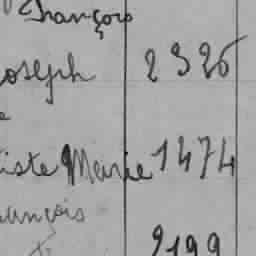 François
Joseph 2326
iste Marie 1474
ançois
2199